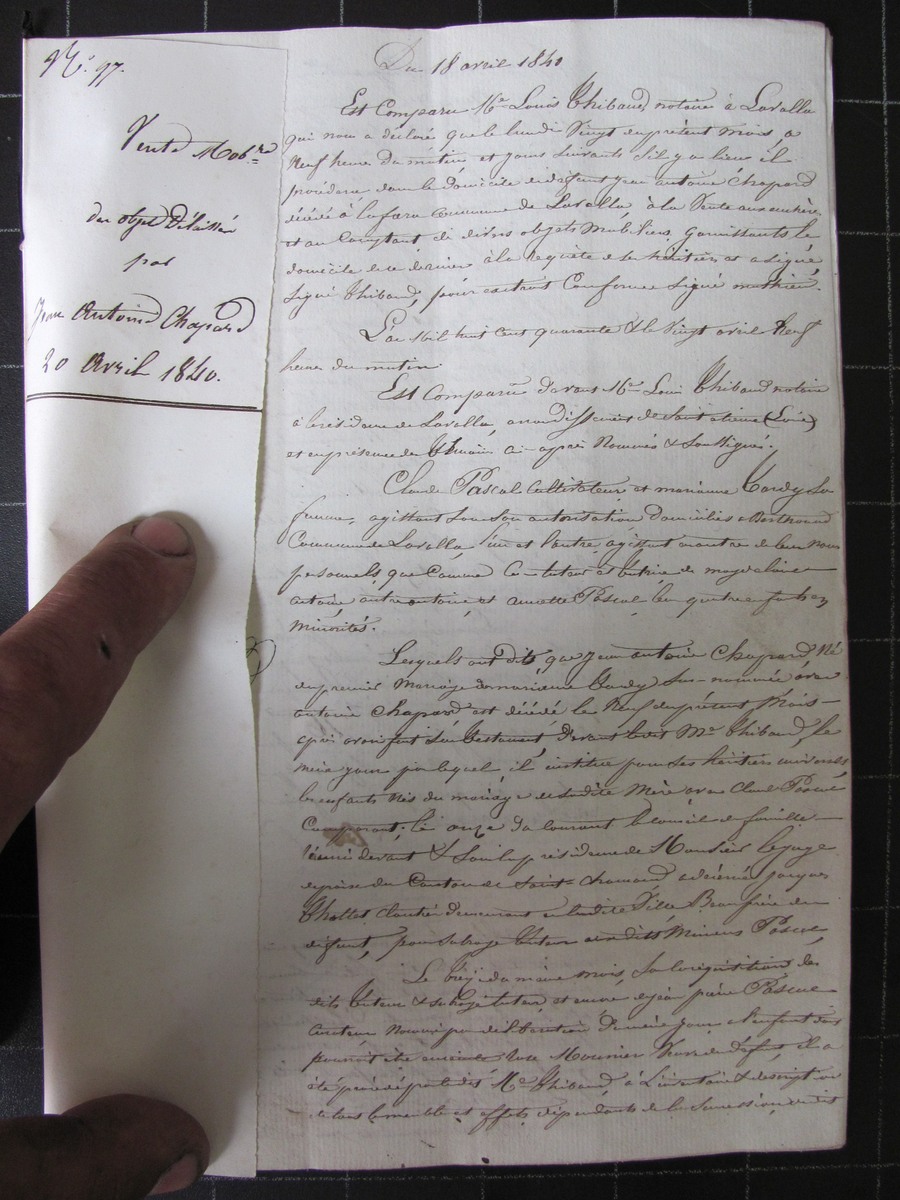 N°. 97.
Vente Mob.re
des objets délaissés
par
Jean Antoine Chapard
20 Avril 1840.
Du 18 avril 1840
Est Comparu Me Louis Thibaud, notaire à Lavalla
qui nous a déclaré que le lundi Vingt du présent mois, a
Neuf heures du matin et jours suivants s'il y a lieu il
procédera dans le domicile de défunt jean antoine Chapard
décédé à commune de Lavalla, à la Vente aux enchères
et au Comptant, de divers objets Mobiliers, garnissants le
domicile de ce dernier à la requête de ses héritiers et a signé,
Signé Thibaud, pour extrait Conforme Signé
L'an Mil huit cent quarante & le Vingt avril Neuf
heures du matin
Est Comparu devant Me Louis Thibaud notaire
à la résidence de Lavalla, arrondissement de Saint etienne (Loire)
et en présence des témoins ci-après Nommés & Soussignés.
Claude Pascal Cultivateur et marianne Tardy Sa
femme, agissant Sous Son autorisation domiciliés a
Commune de Lavalla l'un et l'autre agissant en outre de leurs Noms
personnels que Comme Co-tuteur et tutrice de magdelaine
antoine, autre antoine et annette Pascal leurs quatre enfants en
Minorités.
Lesquels ont dits que Jean antoine Chapard Né
du premier Mariage de marianne Tardy Sus-nommée avec
antoine Chapard est décédé le Neuf du présent Mois
qu'il avait fait Son testament, devant ledit Me Thibaud, le
même jour par lequel il institue pour Ses héritiers universels
les enfants Nés du mariage de Sadite Mère avec Claude Pascal
Comparant, le onze du courant le Conseil de famille
réuni devant & Sous la présidence de Monsieur le juge
de paix du Canton de Saint-chamond a décerné jacques
Chollet cloutier demeurant en ladite Ville Beau frère du
défunt, pour Subrogé tuteur auxdits Mineurs Pascal
Le du même mois, Sa la réquisition des
dits tuteur & subrogé tuteur, et encore de jean pierre Pascal
curateur Nommé par délibération du même jour a l'enfant dont
pourrait être enceinte Rose Mounier Veuve du défunt, il a
été procédé par ledit Me Thibaud, à L'inventaire & description
de tous les meubles et effets dépendants de la Succession, dudit